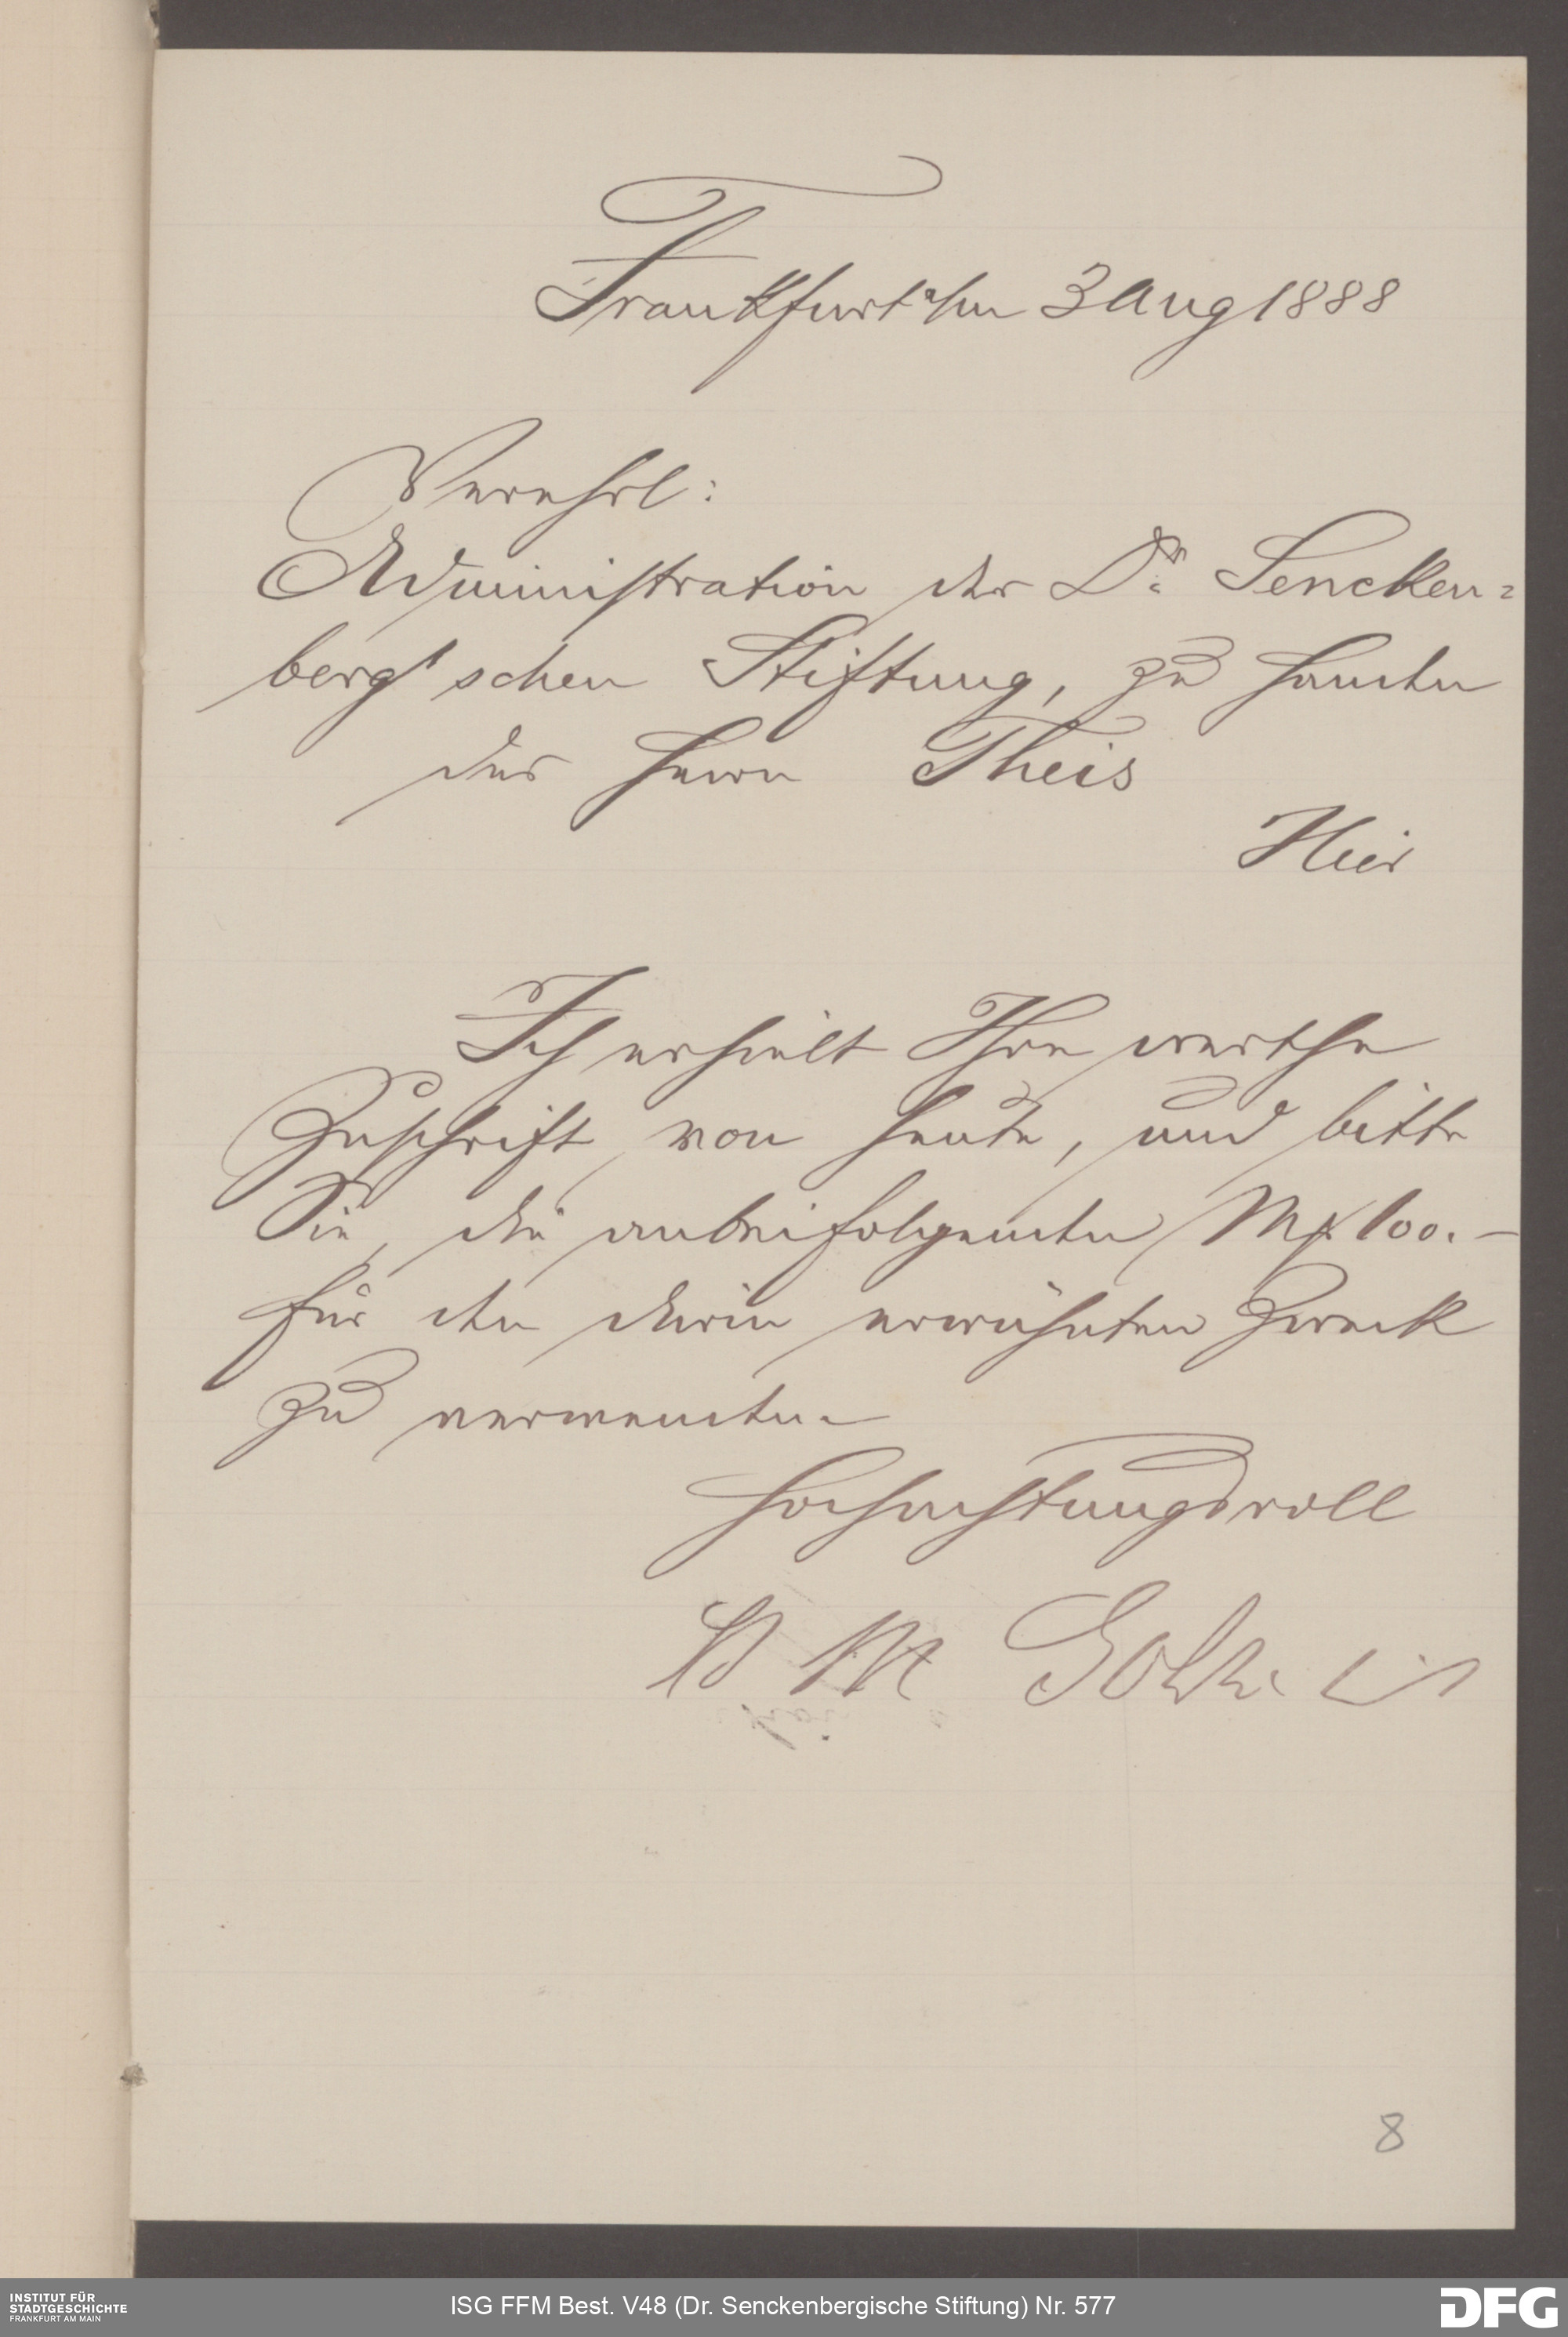 Frankfurt a/m 3 Aug 1888
Verehrl:
Administration der Dr. Sencken=
berg'schen Stiftung, zu Handen
des Herrn Theis
Hier
Ich erhielt Ihre werthe
Zuschrift von heute, und bitte
Sie, die anbeifolgenden Mk 100.–
für den darin erwähnten Zweck
zu verwenden
Hochachtungsvoll
M
8
INSTITUT FÜR
STADTGESCHICHTE
FRANKFURT AM MAIN
ISG FFM Best. V48 (Dr. Senckenbergische Stiftung) Nr. 577
DFG